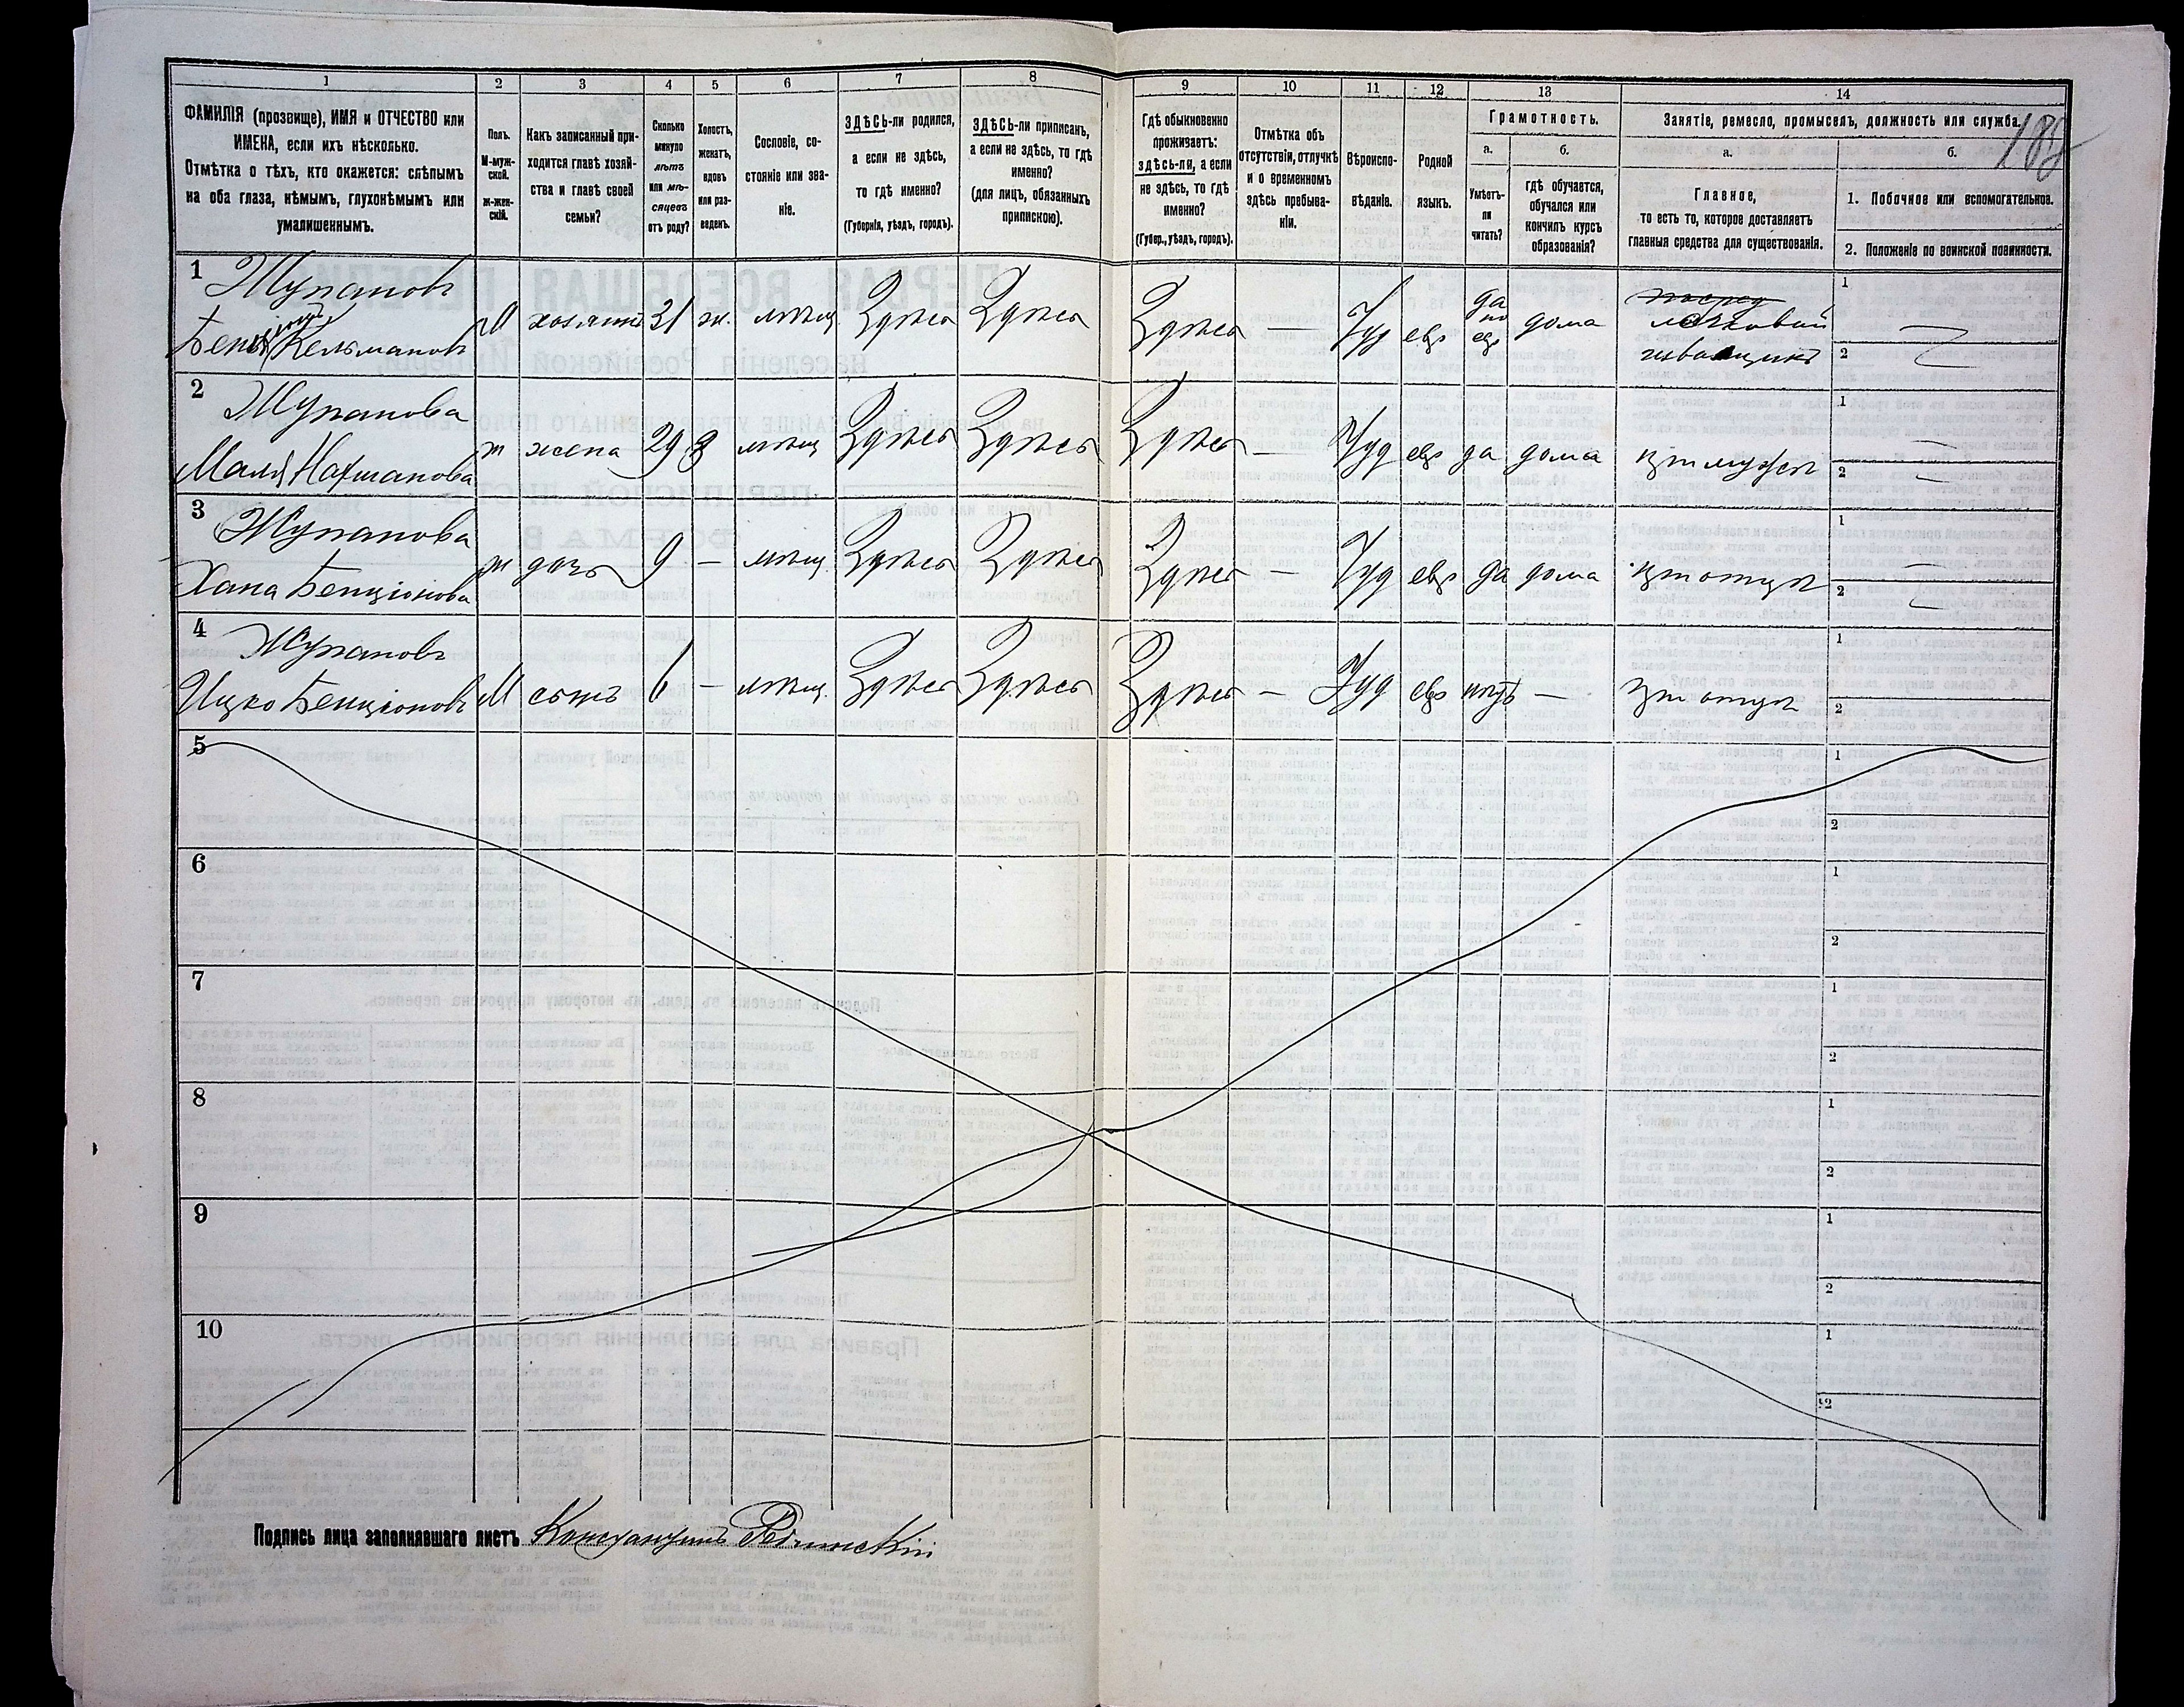 1 2 3 4 5 6 7 8 9 10 11 12 13 14
ФАМИЛІЯ (прозвище), ИМЯ и ОТЧЕСТВО или
ИМЕНА, если ихъ нѣсколько.
Отмѣтка о тѣхъ, кто окажется: слѣпымъ
на оба глаза, нѣмымъ, глухонѣмымъ или
умалишеннымъ.
Полъ.
М-муж-
ской.
Ж-жен-
скій.
Какъ записанный при-
ходится главѣ хозяй-
ства и главѣ своей
семьи?
Сколько
минуло
лѣтъ
или мѣ-
сяцевъ
отъ роду?
Холостъ,
женатъ,
вдовъ
или раз-
веденъ.
Сословіе, со-
стояніе или зва-
ніе.
ЗДѢСЬ-ли родился,
а если не здѣсь,
то гдѣ именно?
(Губернія, уѣздъ, городъ).
ЗДѢСЬ-ли приписанъ,
а если не здѣсь, то гдѣ
именно?
(для лицъ, обязанныхъ
припискою).
Гдѣ обыкновенно
проживаетъ:
здѣсь-ли, а если
не здѣсь, то гдѣ
именно?
(Губер., уѣздъ, городъ).
Отмѣтка объ
отсутствіи, отлучкѣ
и о временномъ
здѣсь пребыва-
ніи.
Вѣроиспо-
вѣданіе.
Родной
языкъ.
Грамотность.
а.
Умѣетъ-
ли
читать?
б.
гдѣ обучается,
обучался или
кончилъ курсъ
образованія?
Занятіе, ремесло, промыселъ, должность или служба.
а.
Главное,
то есть то, которое доставляетъ
главныя средства для существованія.
б.
1. Побочное или вспомогательное.
2. Положеніе по воинской повинности.
1 Жупановъ
Кельмановъ М хозяинъ 31 ж. мѣщ. Здѣсь Здѣсь Здѣсь — Іуд евр да по евр дома
легковой
извощикъ
1 —
2 —
2 Жупанова
Маля Нахманова ж жена 29 з мѣщ Здѣсь Здѣсь Здѣсь — Іуд евр да дома при мужѣ
1 —
2 —
3 Жупанова
Хана Бенціонова ж дочь 9 — мѣщ. Здѣсь Здѣсь Здѣсь — Іуд евр да дома при отцѣ
1 —
2 —
4 Жупановъ
Ицко Бенціоновъ М сынъ 6 — мѣщ. Здѣсь Здѣсь Здѣсь — Іуд евр нѣтъ — при отцѣ
1
2
5
1
2
6
1
2
7
1
2
8
1
2
9
1
2
10
1
2
Подпись лица заполнявшаго листъ